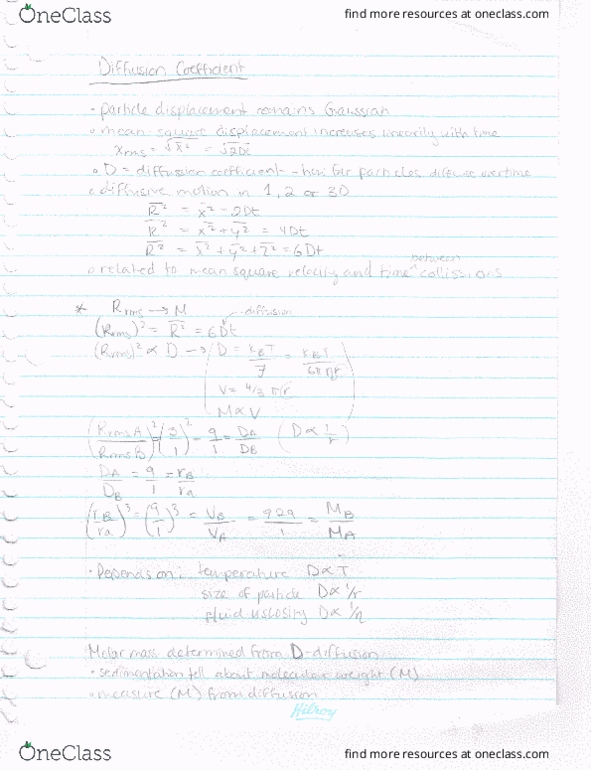 OneClass
find more resources at oneclass.com
Diffusion Coefficient
• particle displacement remains Gaussian
• mean square displacement increases linearily with time
Xrms = √x̄² = √2Dt
• D = diffusion coefficient - how far particles diffuse overtime
• diffusive motion in 1, 2 or 3D
R̄² = x̄² = 2Dt
R̄² = x̄² + ȳ² = 4Dt
R̄² = x̄² + ȳ² + z̄² = 6Dt
between
• related to mean square velocity and time ^ collissions
* Rrms → M
diffusion
(Rrms)² = R̄² = 6Dt
(Rrms)² ∝ D → ( D = kBT/f = kBT/6πηr
V = 4/3 πr
M ∝ V )
(RrmsA/RrmsB)² = (3/1)² = 9/1 = DA/DB (D ∝ 1/r)
DA/DB = 9/1 = rB/ra
(rB/ra)³ = (9/1)³ = VB/VA = 929/1 = MB/MA
• Depends on: temperature D∝T
size of particle D∝ 1/r
fluid viscosity D∝ 1/η
Molar mass determined from D-diffusion
• sedimentation tell about molecular weight (M)
• measure (M) from diffusion
Hilroy
OneClass
find more resources at oneclass.com